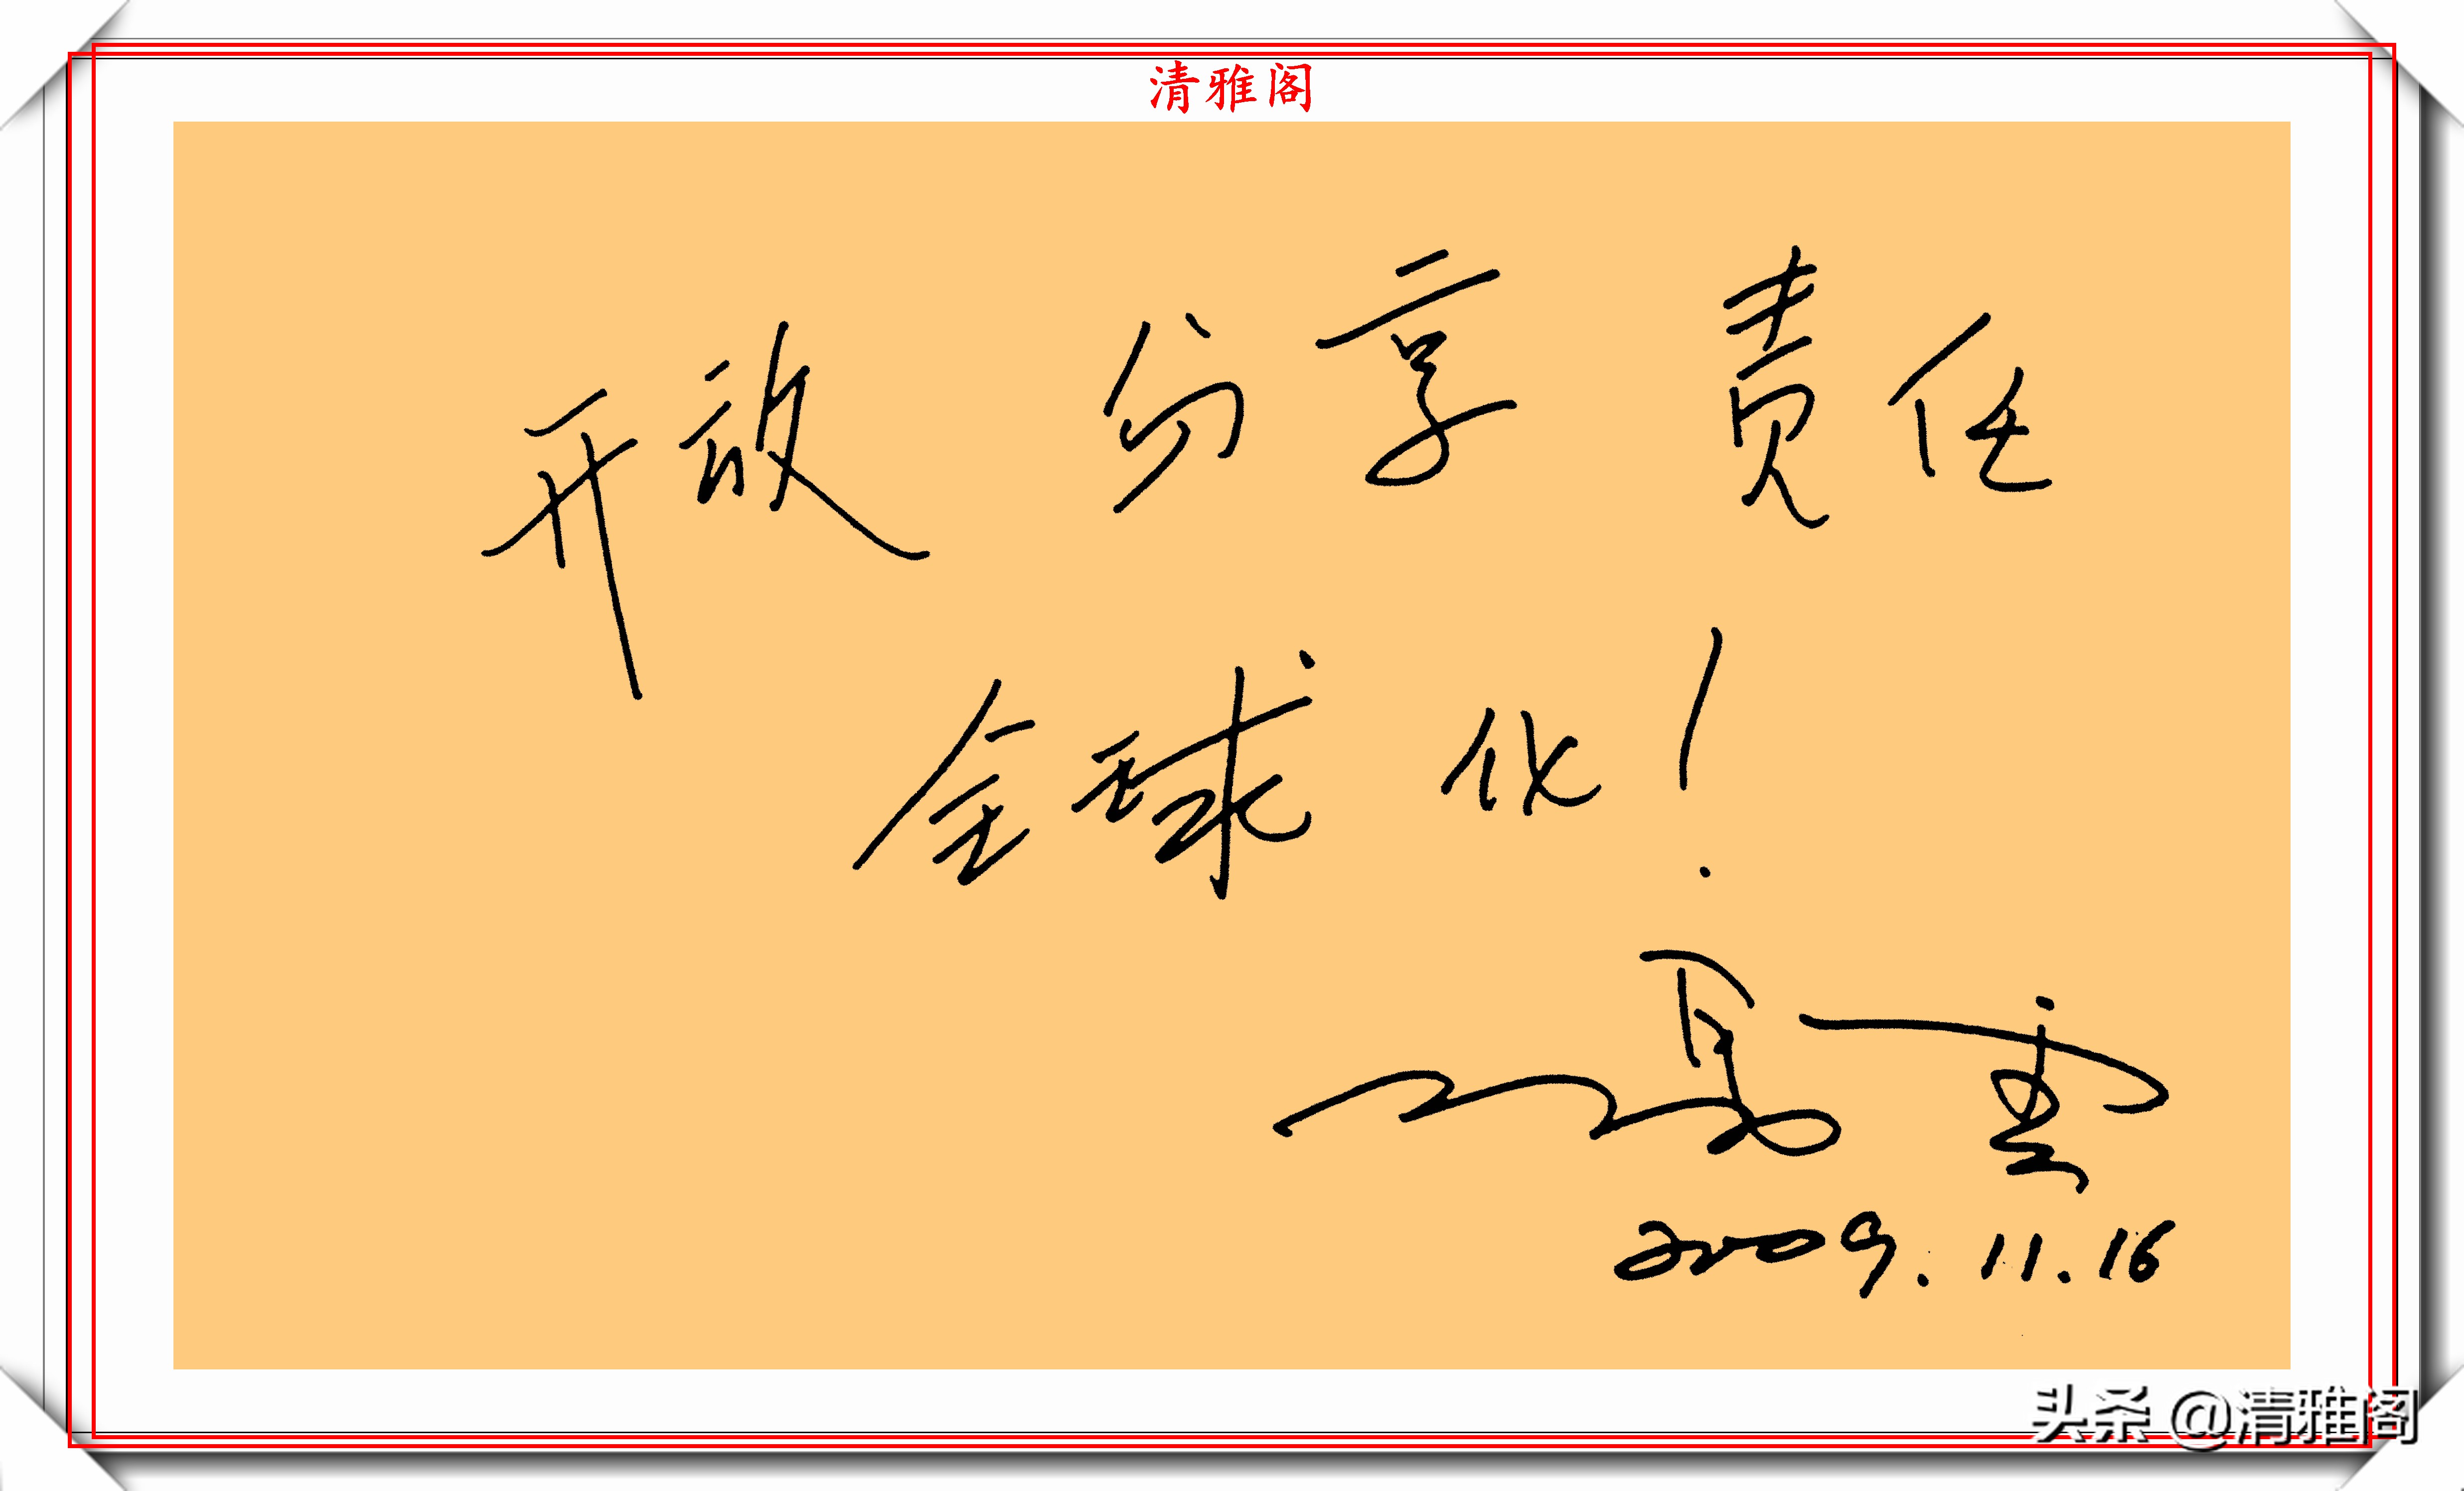 清雅阁
开放 分享 责任
全球化！
马云
2009.11.16
头条 @清雅阁